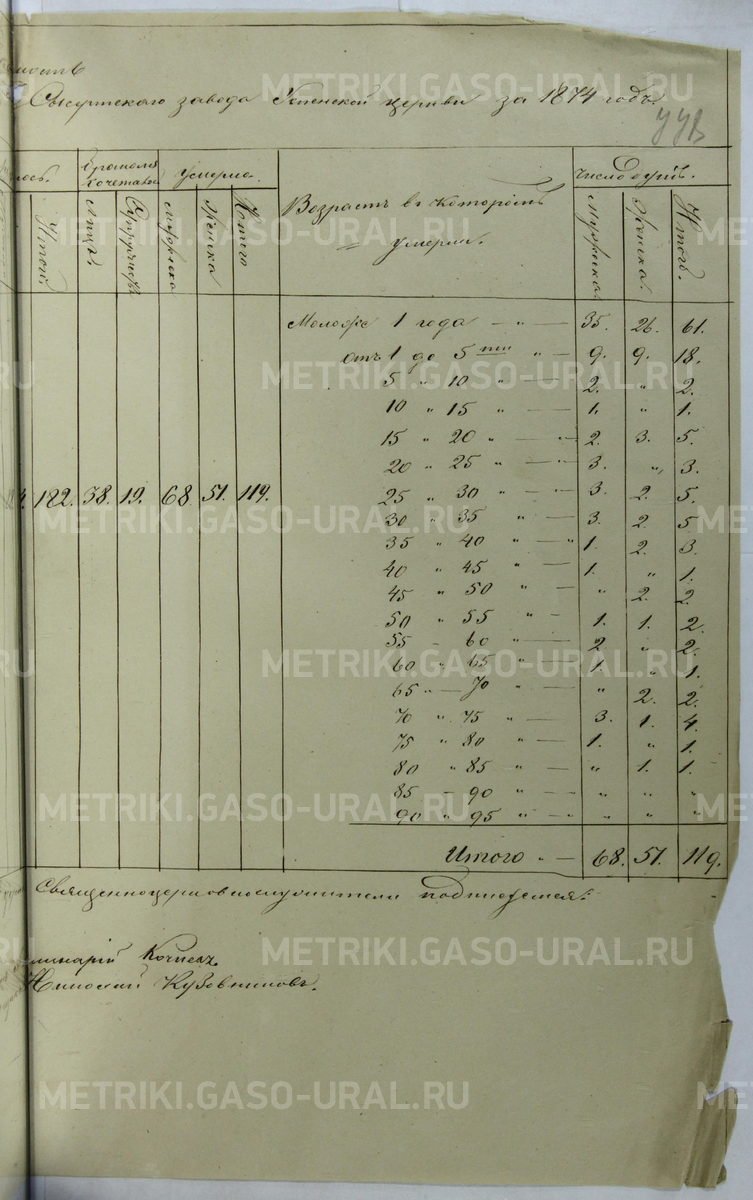 Сысертскаго завода Успенской церкви за 1874 годъ.
лось. Бракомъ сочетано Умерло.
Итого. Лицъ. Мужеска Женска Итого
Возрастъ въ которомъ умерли.
Число душъ.
Мужеска. Женска. Итогъ.
Моложе 1 года - " - 35. 26. 61.
отъ 1 до 5ти " - 9. 9. 18.
5 " 10 " - 2. " 2.
10 " 15 " - 1. " 1.
15 " 20 " - 2. 3. 5.
20 " 25 " - 3. " 3.
182. 38. 19. 68 51. 119.
25 " 30 " - 3. 2. 5.
30 " 35 " - 3. 2. 5
35 " 40 " - 1. 2. 3.
40 " 45 " - 1. " 1.
45 " 50 " - " 2. 2.
50 " 55 " - 1. 1. 2.
55 - 60 " - 2 " 2.
60 " 65 " - 1. " 1.
65 " - 70 " - " 2. 2.
70 " 75 " - 3. 1. 4.
75 " 80 " - 1. " 1.
80 " 85 " - " 1. 1.
85 - 90 " - " " "
90 " 95 " - " " "
Итого " - 68. 51. 119.
Священноцерковнослужители подписуемся:
METRIKI.GASO-URAL.RU